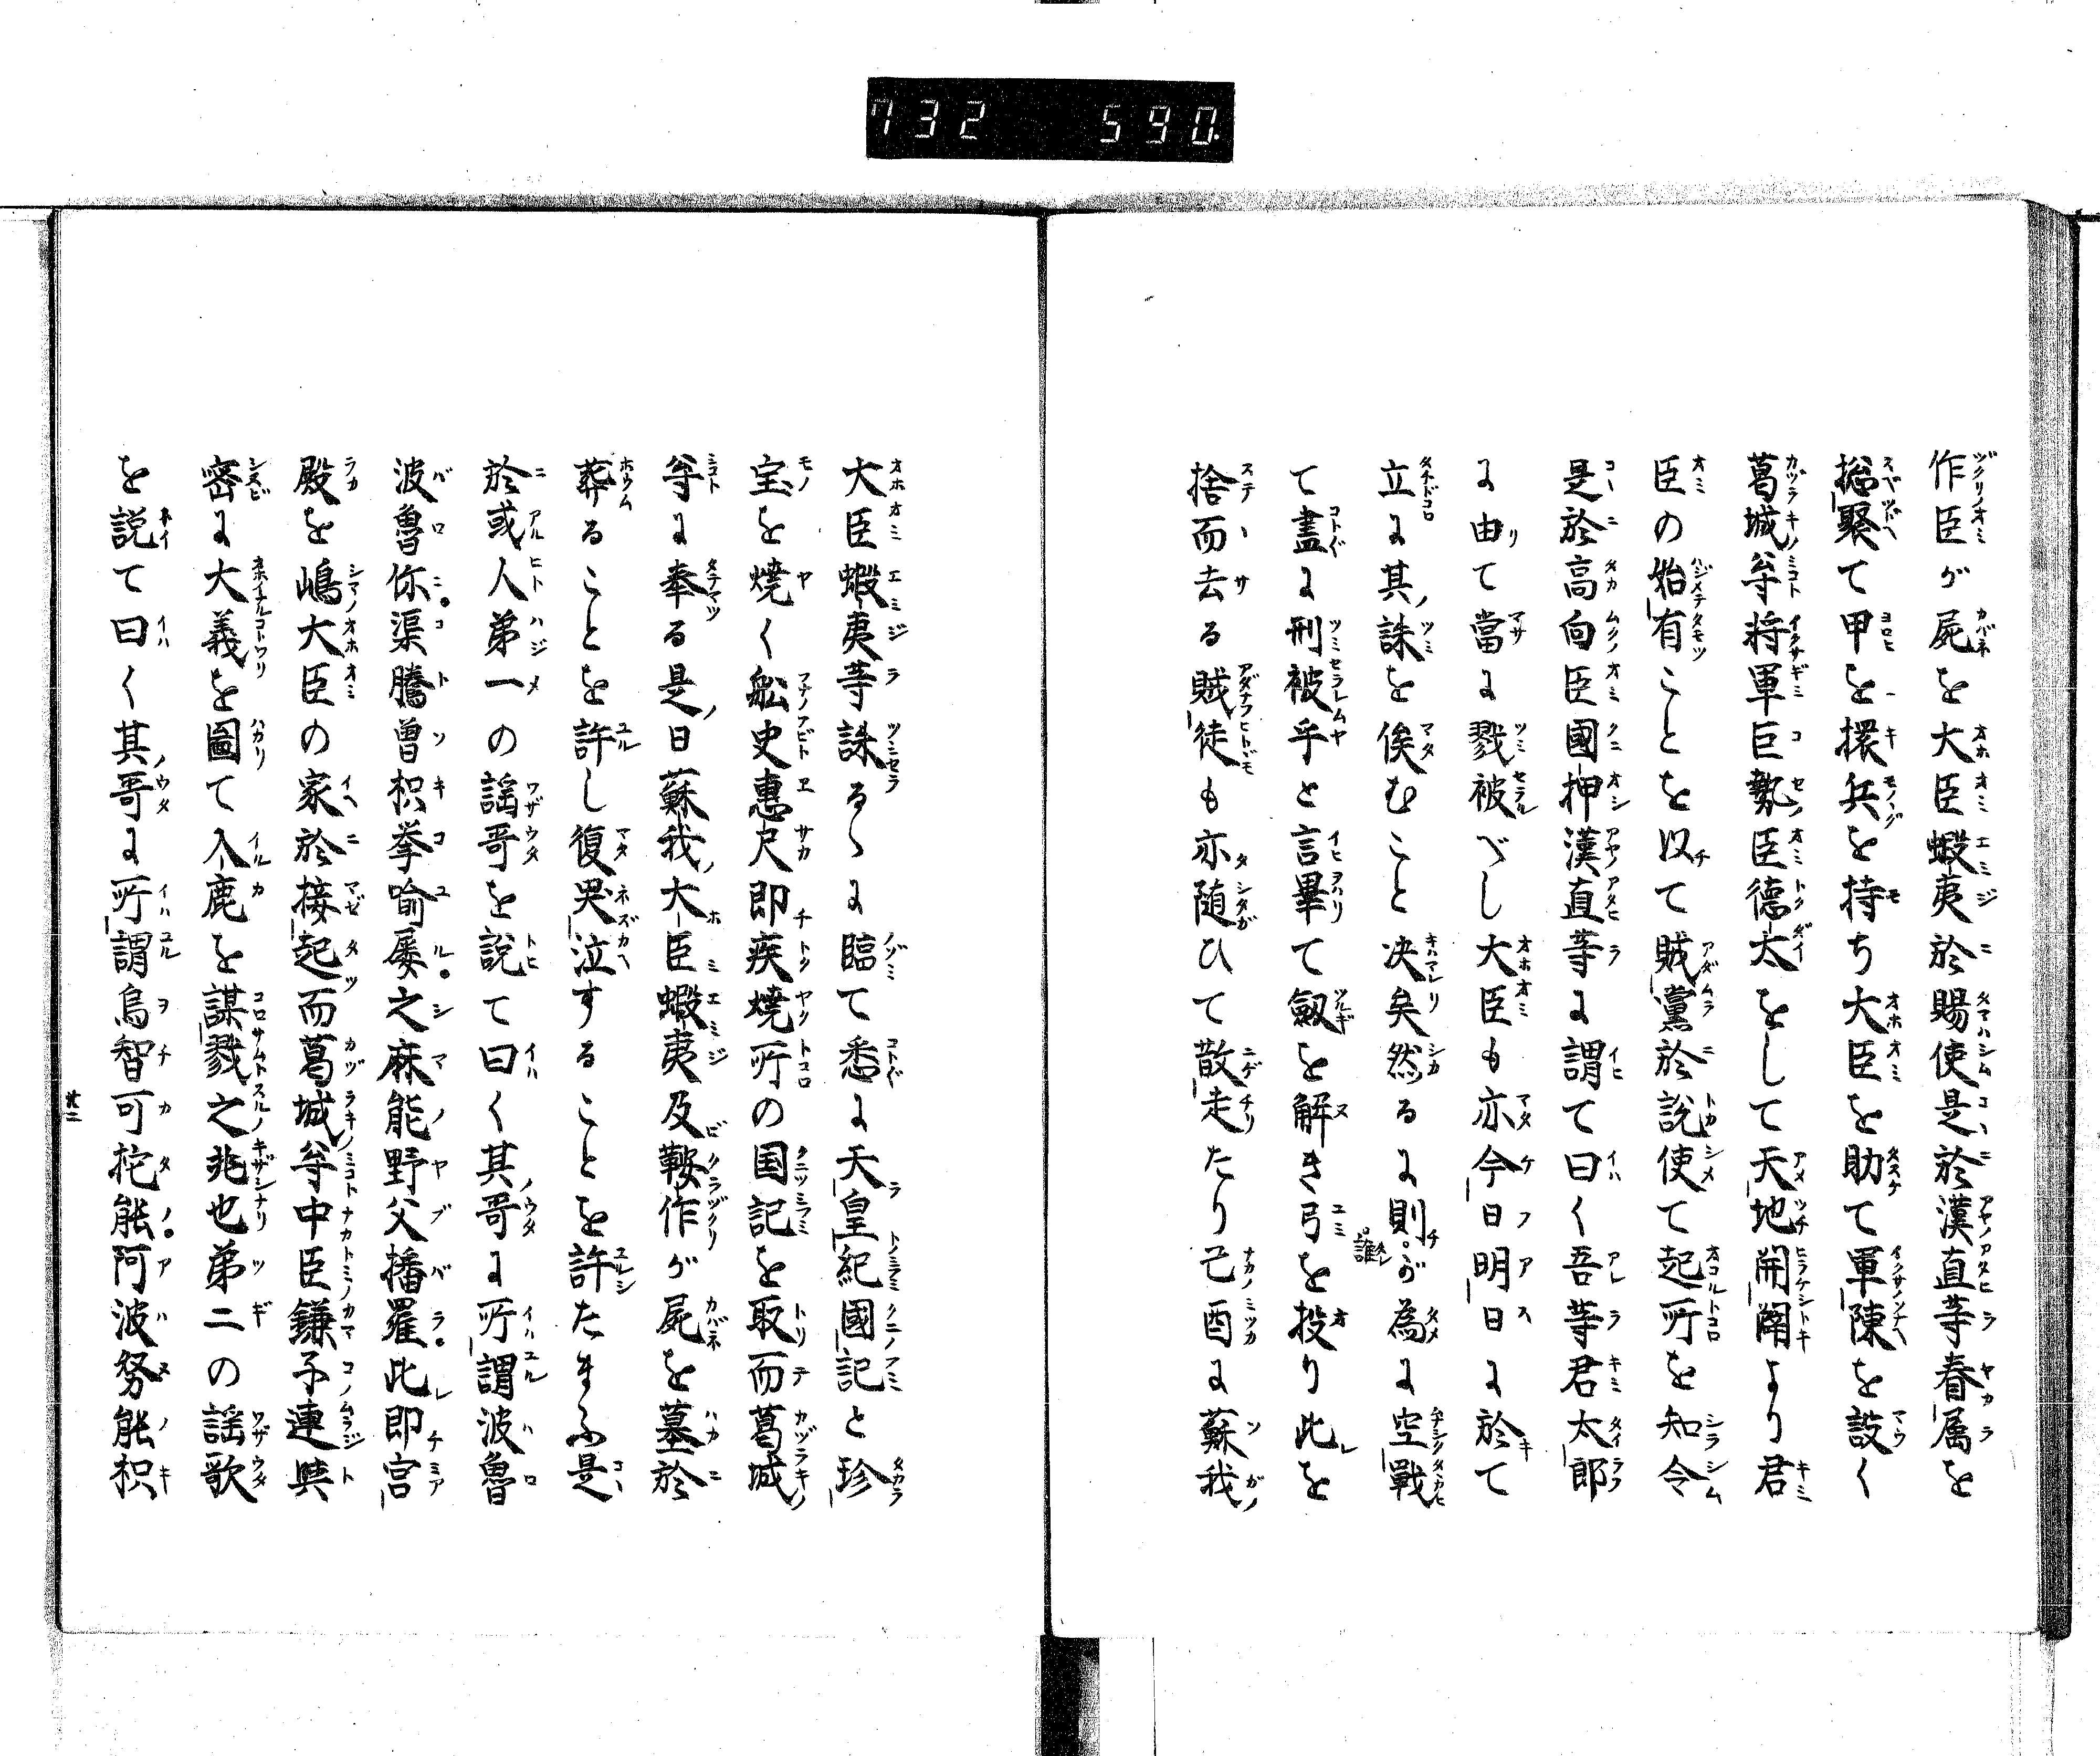 732 590
作臣が屍を大臣蝦夷於賜使是於漢直等眷属を
捴聚て甲を擐兵を持ち大臣を助て軍陳を設く
葛城𡭗将軍巨勢臣德太をして天地開闢より君
臣の始有ことを以て賊黨於説使て起所を知令
是於高向臣國押漢直等に謂て曰く吾等君太郎
に由て當に戮被べし大臣も亦今日明日に於て
立に其誅を俟むこと决矣然るに則誰が為に空戰
て盡に刑被乎と言畢て劔を解き弓を投り此を
捨而去る賊徒も亦随ひて散走たり己酉に蘇我
大臣蝦夷等誅るゝに臨て悉に天皇紀國記と珍
宝を燒く舩史惠尺即疾燒所の国記を取而葛城
𡭗に奉る是日蘇我大臣蝦夷及鞍作が屍を墓於
葬ることを許し復哭泣することを許たまふ是
於或人第一の謡哥を説て曰く其哥に所謂波魯
波魯你渠騰曽枳挙喩屡之麻能野父播羅此即宮
殿を嶋大臣の家於接起而葛城𡭗中臣鎌子連與
密に大義を圖て入鹿を謀戮之兆也第二の謡歌
を説て曰く其哥に所謂烏智可拕能阿波努能枳
廿二